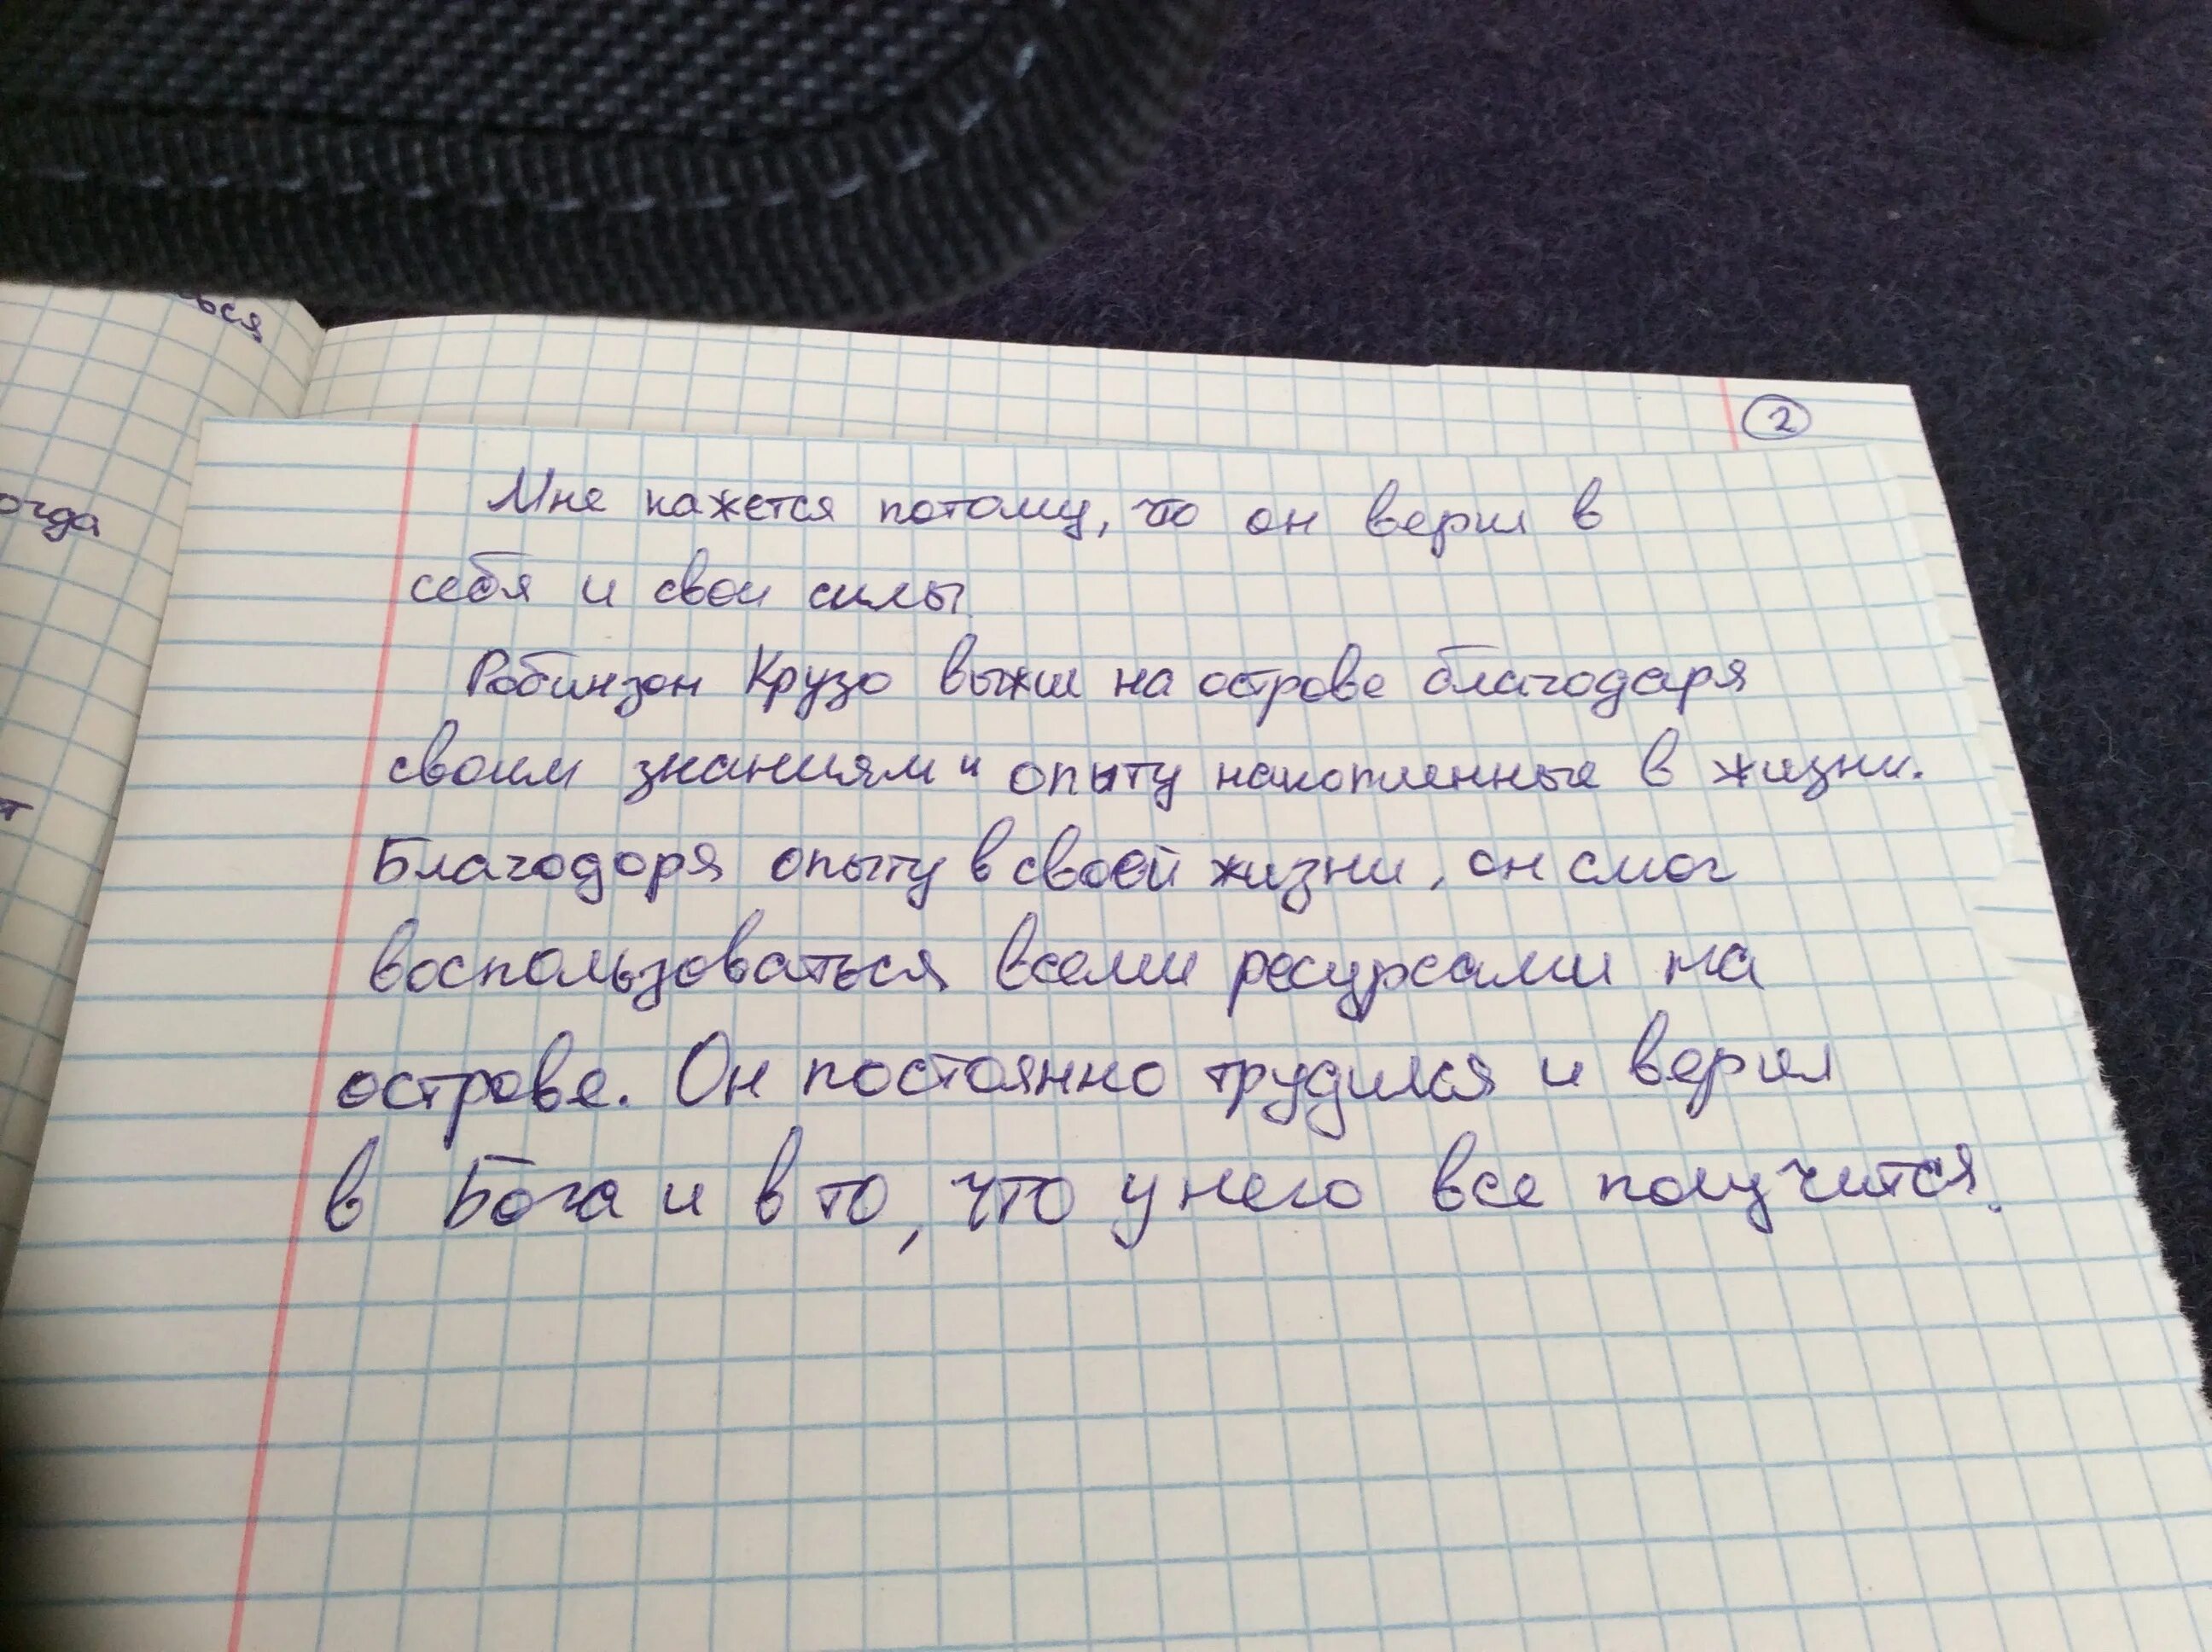 ься
огда
т
2
Мне кажется потому, что он верил в
себя и свои силы.
Робинзон Крузо выжил на острове благодаря
своим знаниям и опыту накопленные в жизни.
Благодоря опыту в своей жизни, он смог
воспользоваться всеми ресурсами на
острове. Он постоянно трудился и верил
в Бога и в то, что у него все получится.